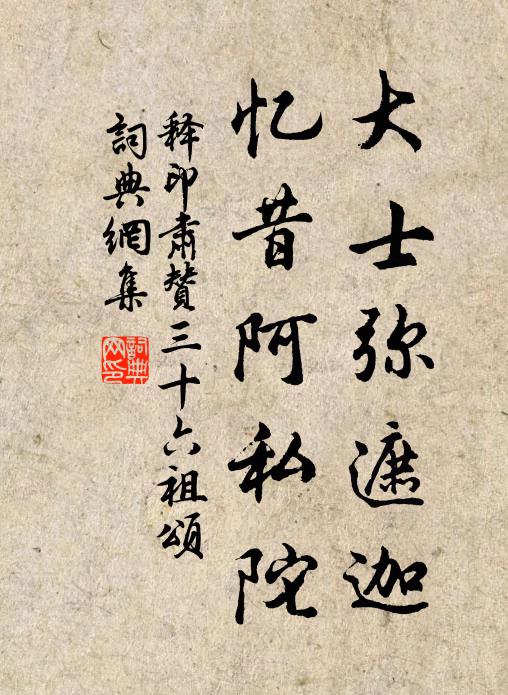 大士弥遮迦
忆昔阿私陀
释印肃赞三十六祖颂
詞典網集
詞典网印